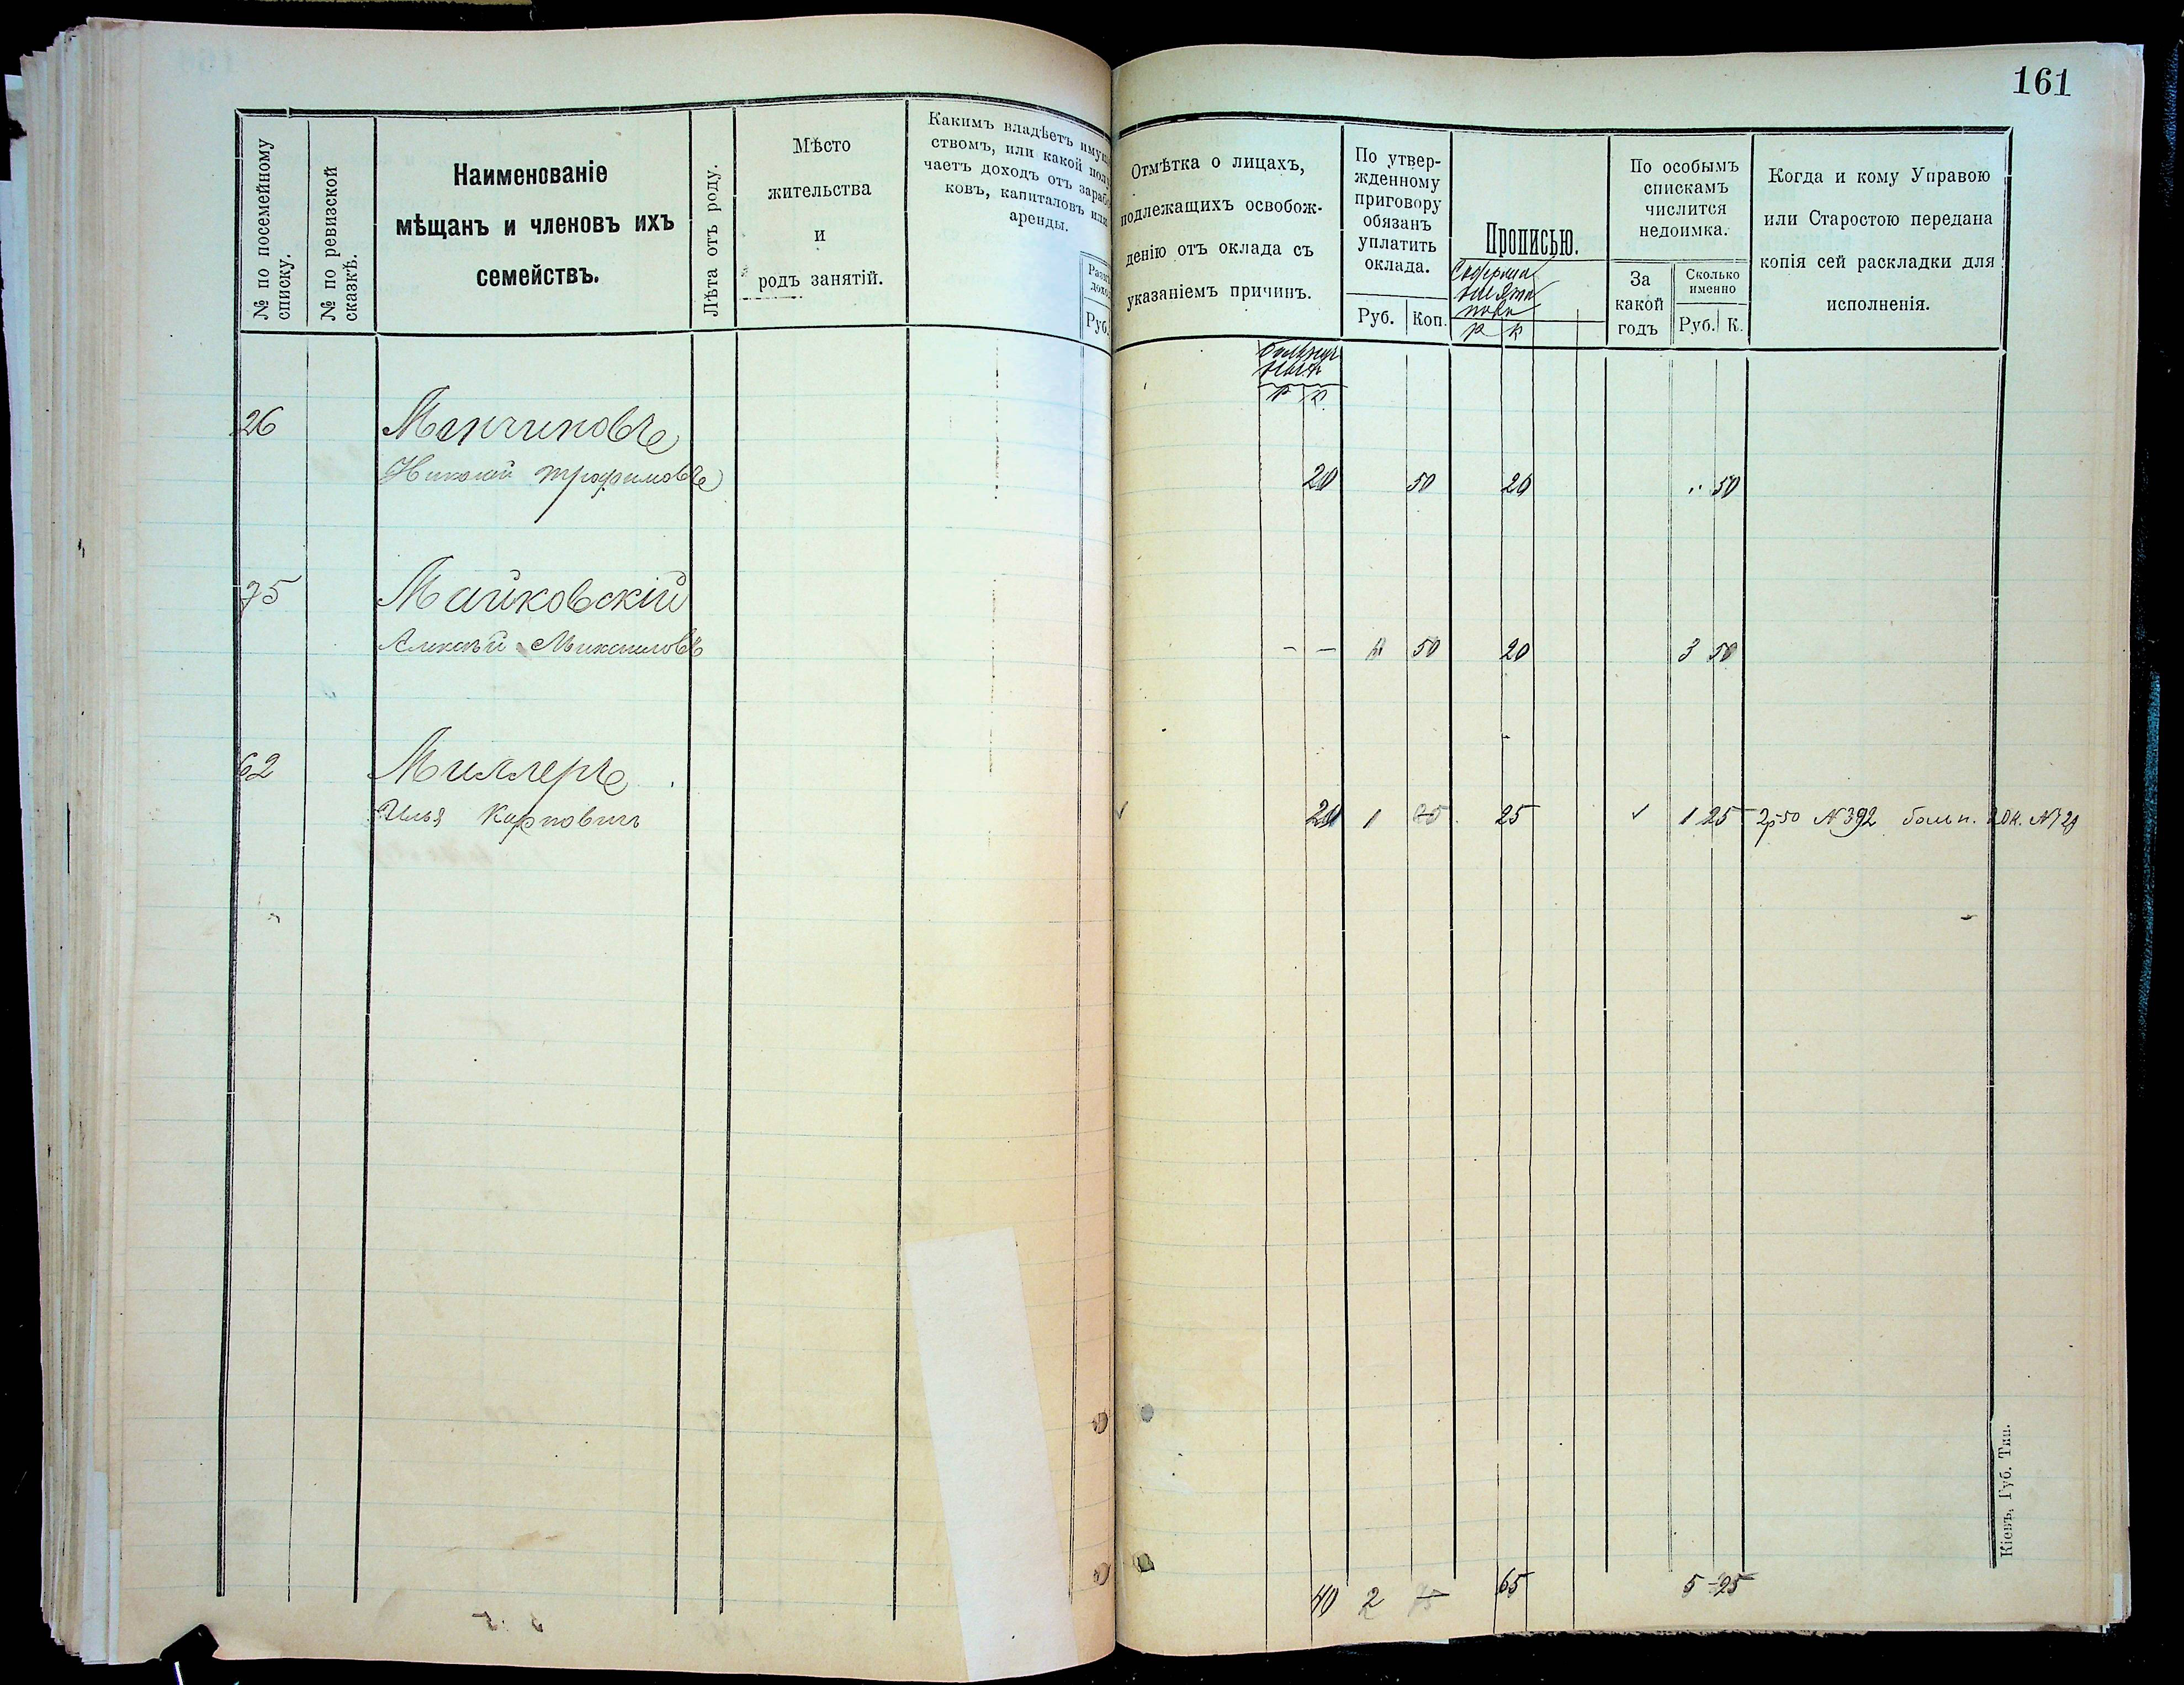 161
№ по посемейному
списку.
№ по ревизской
сказкѣ.
Наименованіе
мѣщанъ и членовъ ихъ
семействъ.
Лѣта отъ роду.
Мѣсто
жительства
и
родъ занятій.
Какимъ владѣетъ
ствомъ, или какой
чаетъ доходъ отъ
ковъ, капиталовъ или
аренды.
Руб.
Отмѣтка о лицахъ,
подлежащихъ освобож-
денію отъ оклада съ
указаніемъ причинъ.
По утвер-
жденному
приговору
обязанъ
уплатить
оклада.
Руб. Коп.
Прописью.
р к
По особымъ
спискамъ
числится
недоимка.
За
какой
годъ
Сколько
именно
Руб. К.
Когда и кому Управою
или Старостою передана
копія сей раскладки для
исполненія.
р к
26 Менчиковъ
Николай Трофимовъ 20 50 20 " 50
75 Майковскій
Алексѣй — — 50 20 3 50
62 Миллеръ
Илья Карповичъ 20 1 25 1 25 2р50 №392 больн. 20к.
40 2 65 5 25
Кіевъ, Губ. Тип.